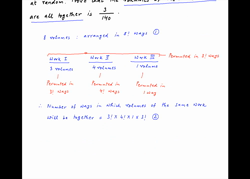 at random.
are all together is 3/140
8 volumes : arranged in 8! ways ①
Work I Work II Work III → Permuted in 3! ways
3 volumes 4 volumes 1 volume
Permuted in Permuted in Permuted in
3! ways 4! ways 1 way
∴ Number of ways in which volumes of the same work
will be together = 3! × 4! × 1 × 3! ②